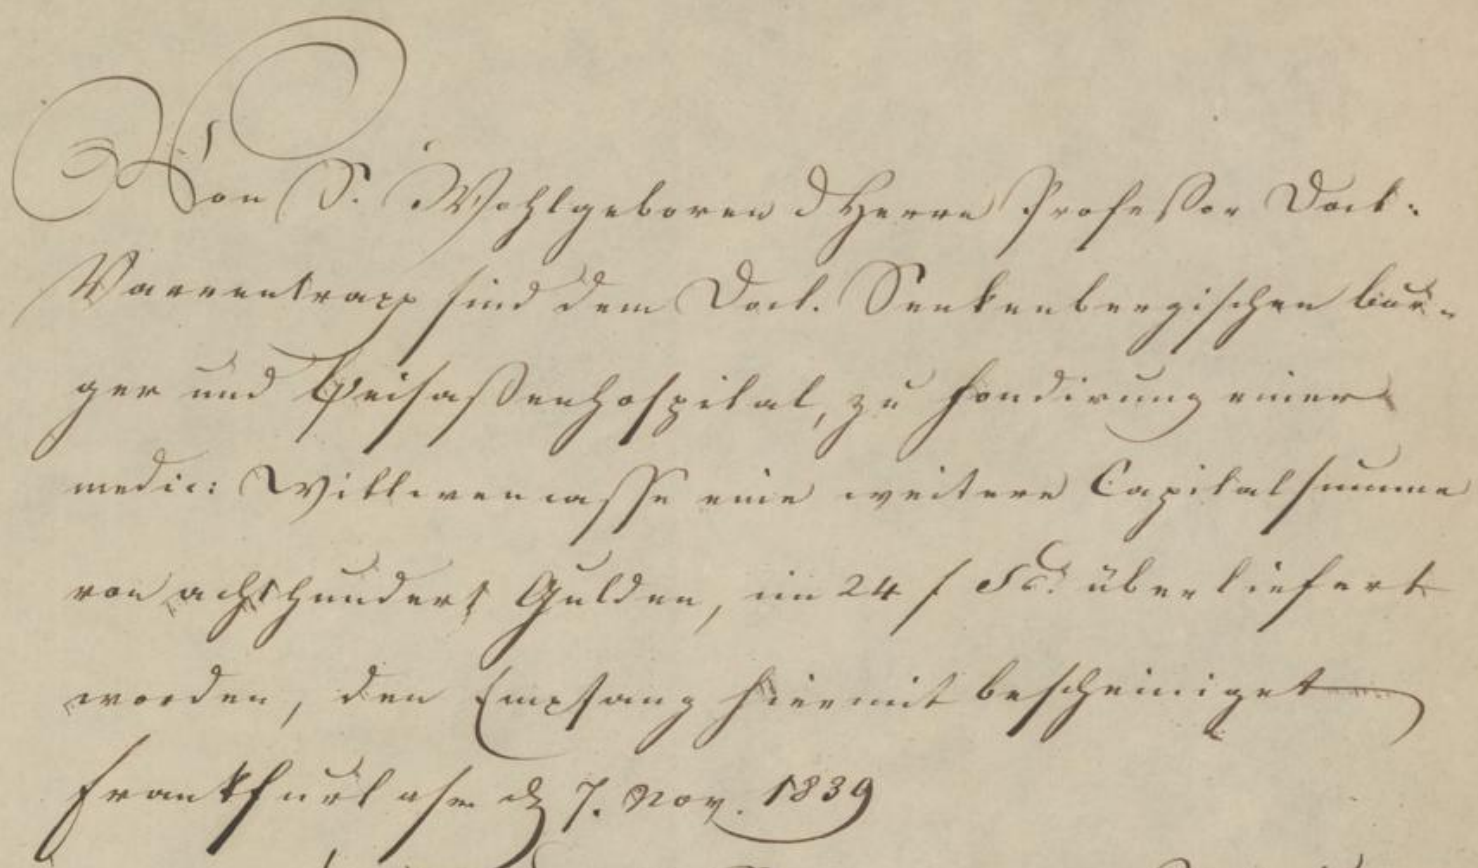 Von S. Wohlgeboren d Herrn Professor Doct:
Varrentrapp sind dem Doct. Senkenbergischen bür-
ger und Beisaßenhospital, zu Fondirung einer
medic: Wittwencasse eine weitere Capitalsumme
von achthundert Gulden, im 24 f überliefert
worden, den Empfang hiermit bescheiniget
Frankfurt a/m d 7. Nov. 1839